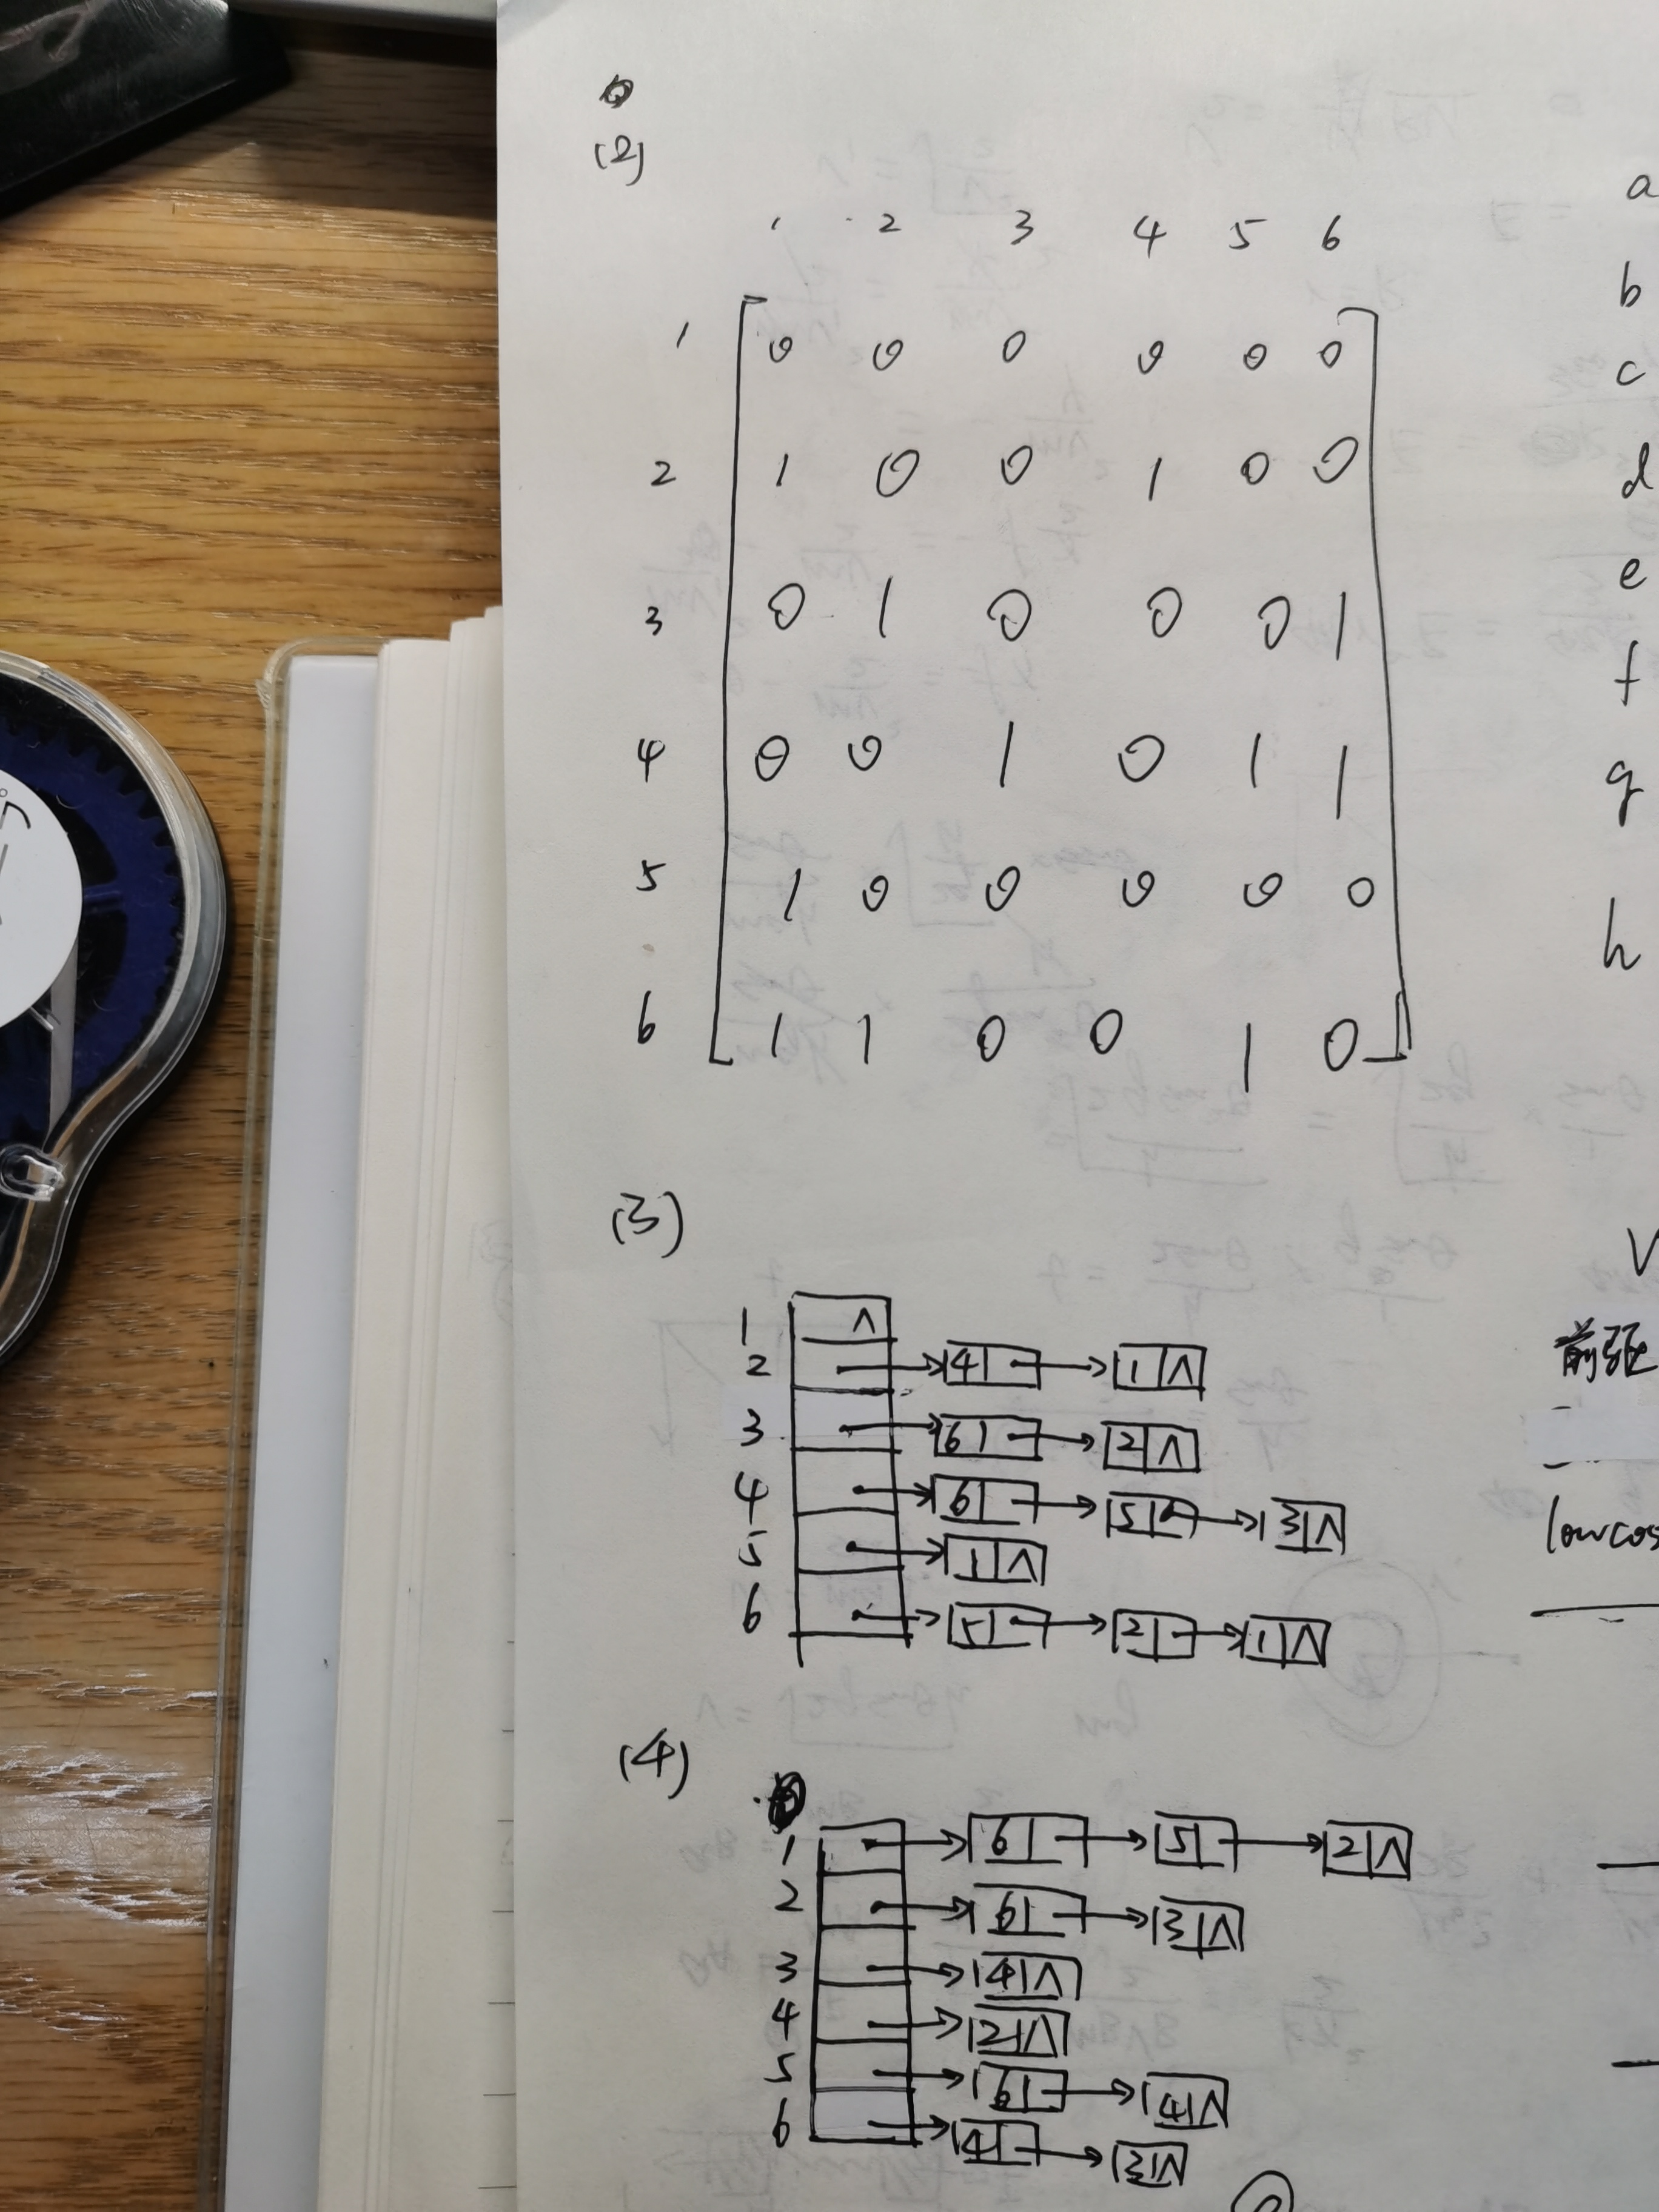 (2)
1 2 3 4 5 6
1 0 0 0 0 0 0
2 1 0 0 1 0 0
3 0 1 0 0 0 1
4 0 0 1 0 1 1
5 1 0 0 0 0 0
6 1 1 0 0 1 0
(3)
1 ∧
2 → 4 → 1 ∧
3 → 6 → 2 ∧
4 → 6 → 5 → 3 ∧
5 → 1 ∧
6 → 5 → 2 → 1 ∧
(4)
1 → 6 → 5 → 2 ∧
2 → 6 → 3 ∧
3 → 4 ∧
4 → 2 ∧
5 → 6 → 4 ∧
6 → 4 → 3 ∧
a
b
c
d
e
f
g
h
V
前驱
lowcos